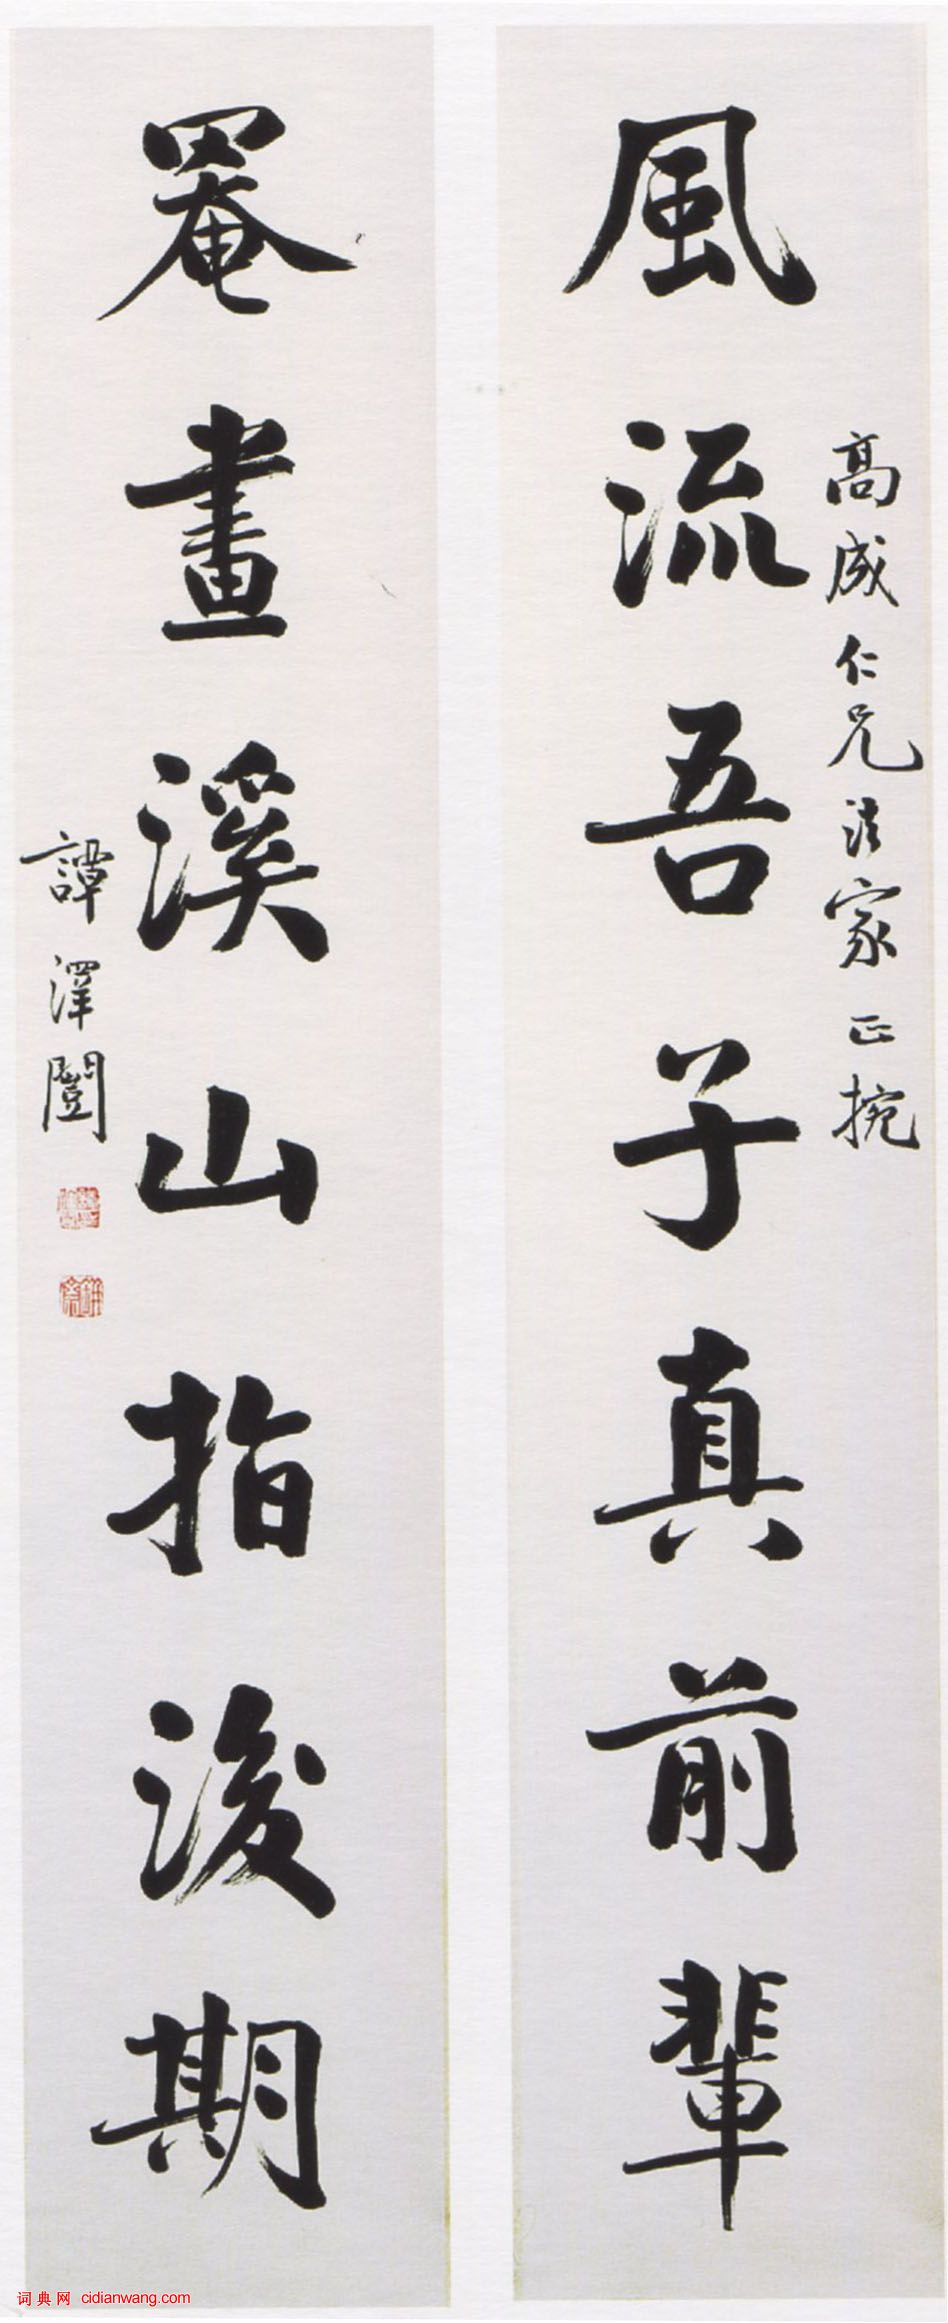 風流吾子真前輩
高成仁兄法家正捥
罨畫溪山指後期
譚澤闓
词典网 cidianwang.com